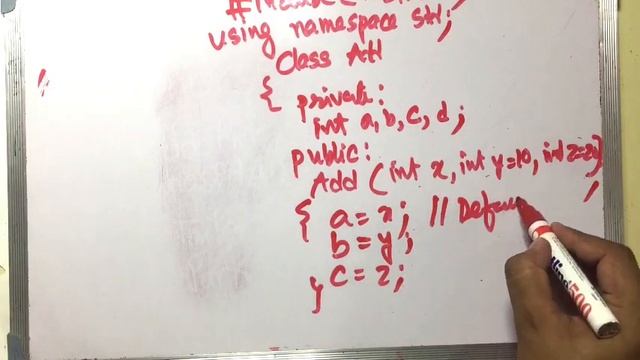 using namespace std;
Class Add
{ private:
int a, b, c, d;
public:
Add (int x, int y=10, int z=20)
{ a = x; // Defau
b = y;
c = z;
}